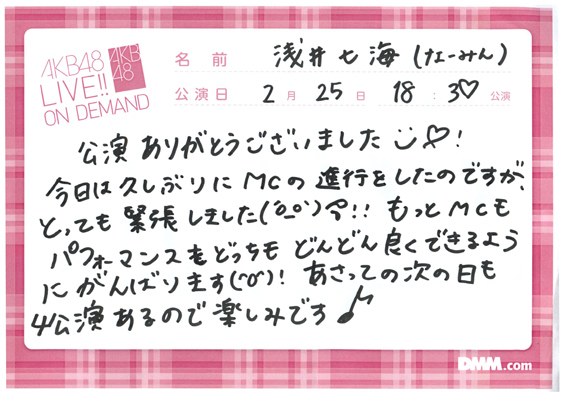 AKB48
LIVE!!
ON DEMAND
AKB
48
名前 浅井七海(なーみん)
公演日 2月25日 18:30公演
公演ありがとうございました♡!
今日は久しぶりにMCの進行をしたのですが、
とっても緊張しました(ºoº)!! もっとMCも
パフォーマンスもどっちもどんどん良くできるよう
にがんばります(ºoº)! あさっての次の日も
公演あるので楽しみです♪
DMM.com